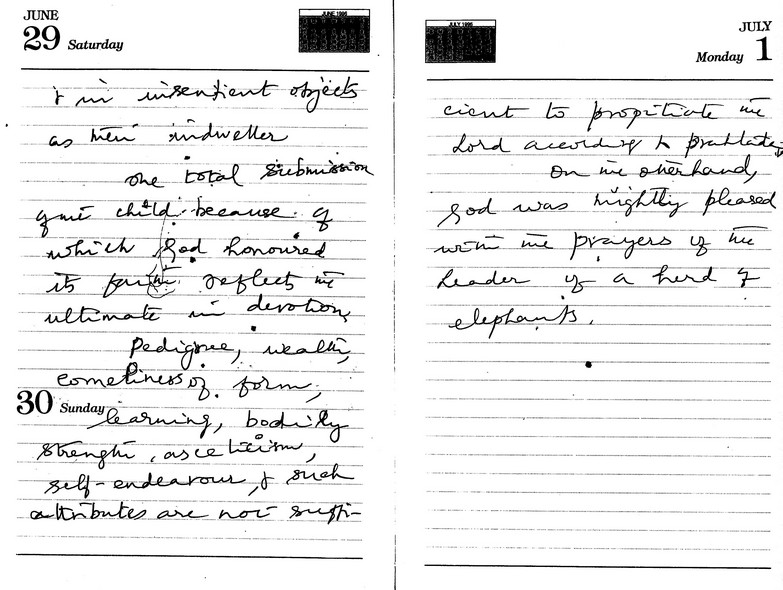 JUNE
29 Saturday
JUNE 1996
& in insentient objects
as their indweller
The total submission
of the child because of
which God honoured
its faith reflects the
ultimate in devotion,
Pedigree, wealth,
comeliness of form,
30 Sunday
learning, bodily
strength, asceticism,
self-endeavour, & such
attributes are not suffi-
JULY
Monday 1
JULY 1996
cient to propitiate the
Lord according to prahlada,
On the otherhand,
God was mightly pleased
with the prayers of the
Leader of a herd of
elephants.